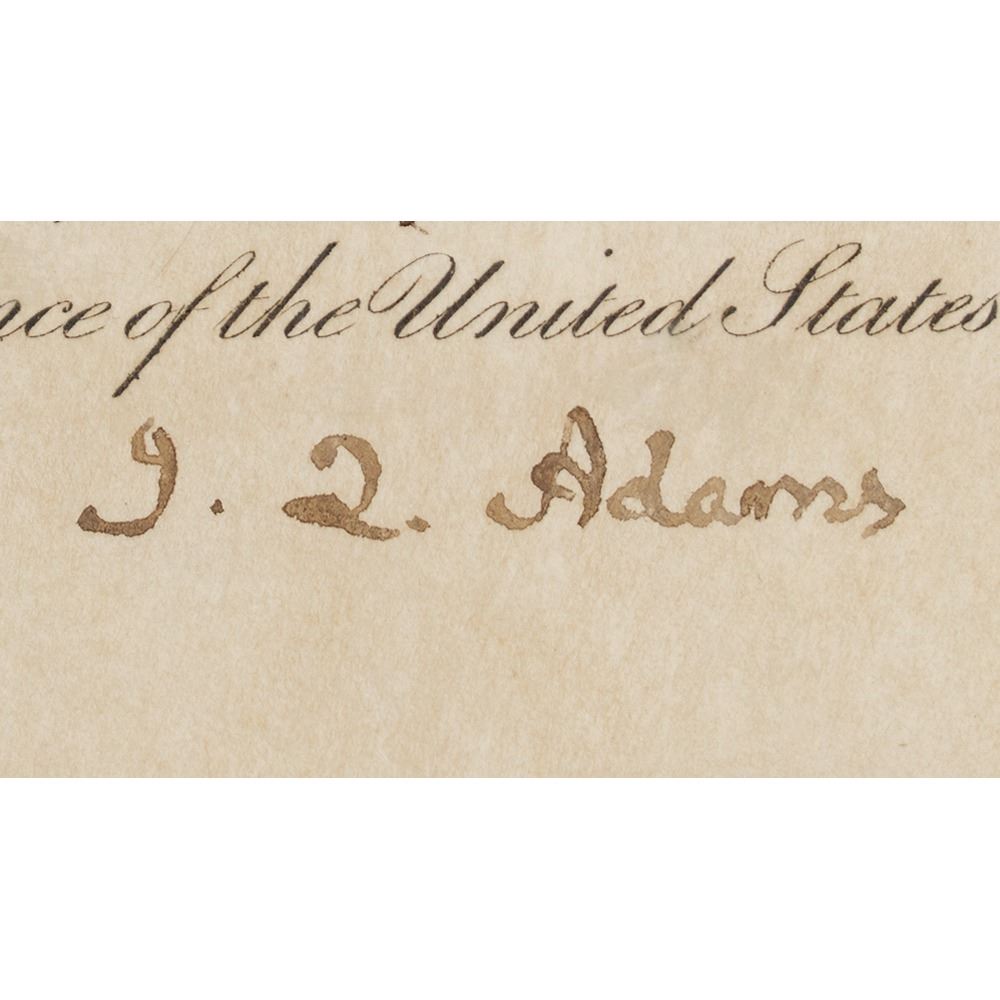 nce of the United States
J. Q. Adams